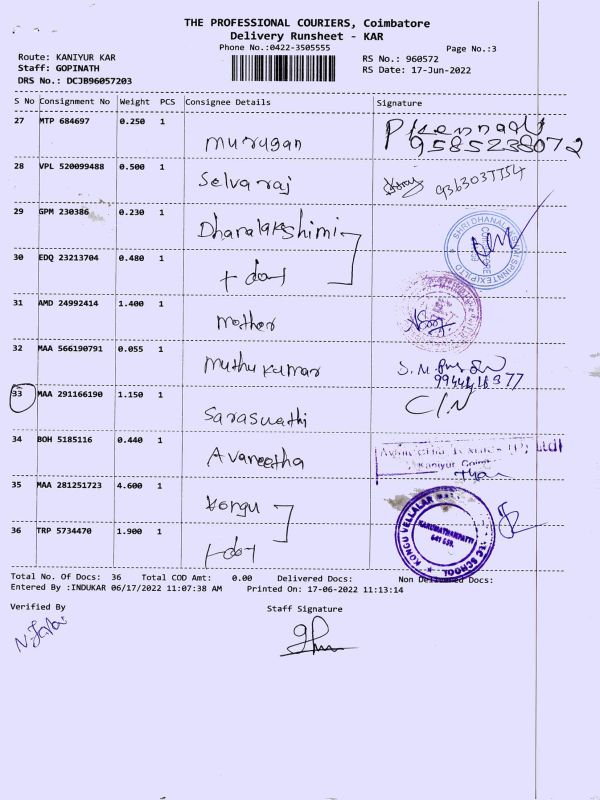 THE PROFESSIONAL COURIERS, Coimbatore
Delivery Runsheet - KAR
Phone No.:0422-3505555
Page No.:3
Route: KANIYUR KAR
RS No.: 960572
Staff: GOPINATH
RS Date: 17-Jun-2022
DRS No.: DCJB96057203
S No Consignment No Weight PCS Consignee Details Signature
27 MTP 684697 0.250 1
murugan
9585238072
28 VPL 520099488 0.500 1
Selvaraj
29 GPM 230386 0.230 1
Dhanalakshimi
30 EDQ 23213704 0.480 1
31 AMD 24992414 1.400 1
mother
32 MAA 566190791 0.055 1
Muthukumar
33 MAA 291166190 1.150 1
Saraswathi
C/N
34 BOH 5185116 0.440 1
Avaneetha
Kaniyur
35 MAA 281251723 4.600 1
Kongu
KONGU VELLALAR
SCHOOL
36 TRP 5734470 1.900 1
Total No. Of Docs: 36 Total COD Amt: 0.00 Delivered Docs: Non Delivered Docs:
Entered By :INDUKAR 06/17/2022 11:07:38 AM Printed On: 17-06-2022 11:13:14
Verified By
Staff Signature